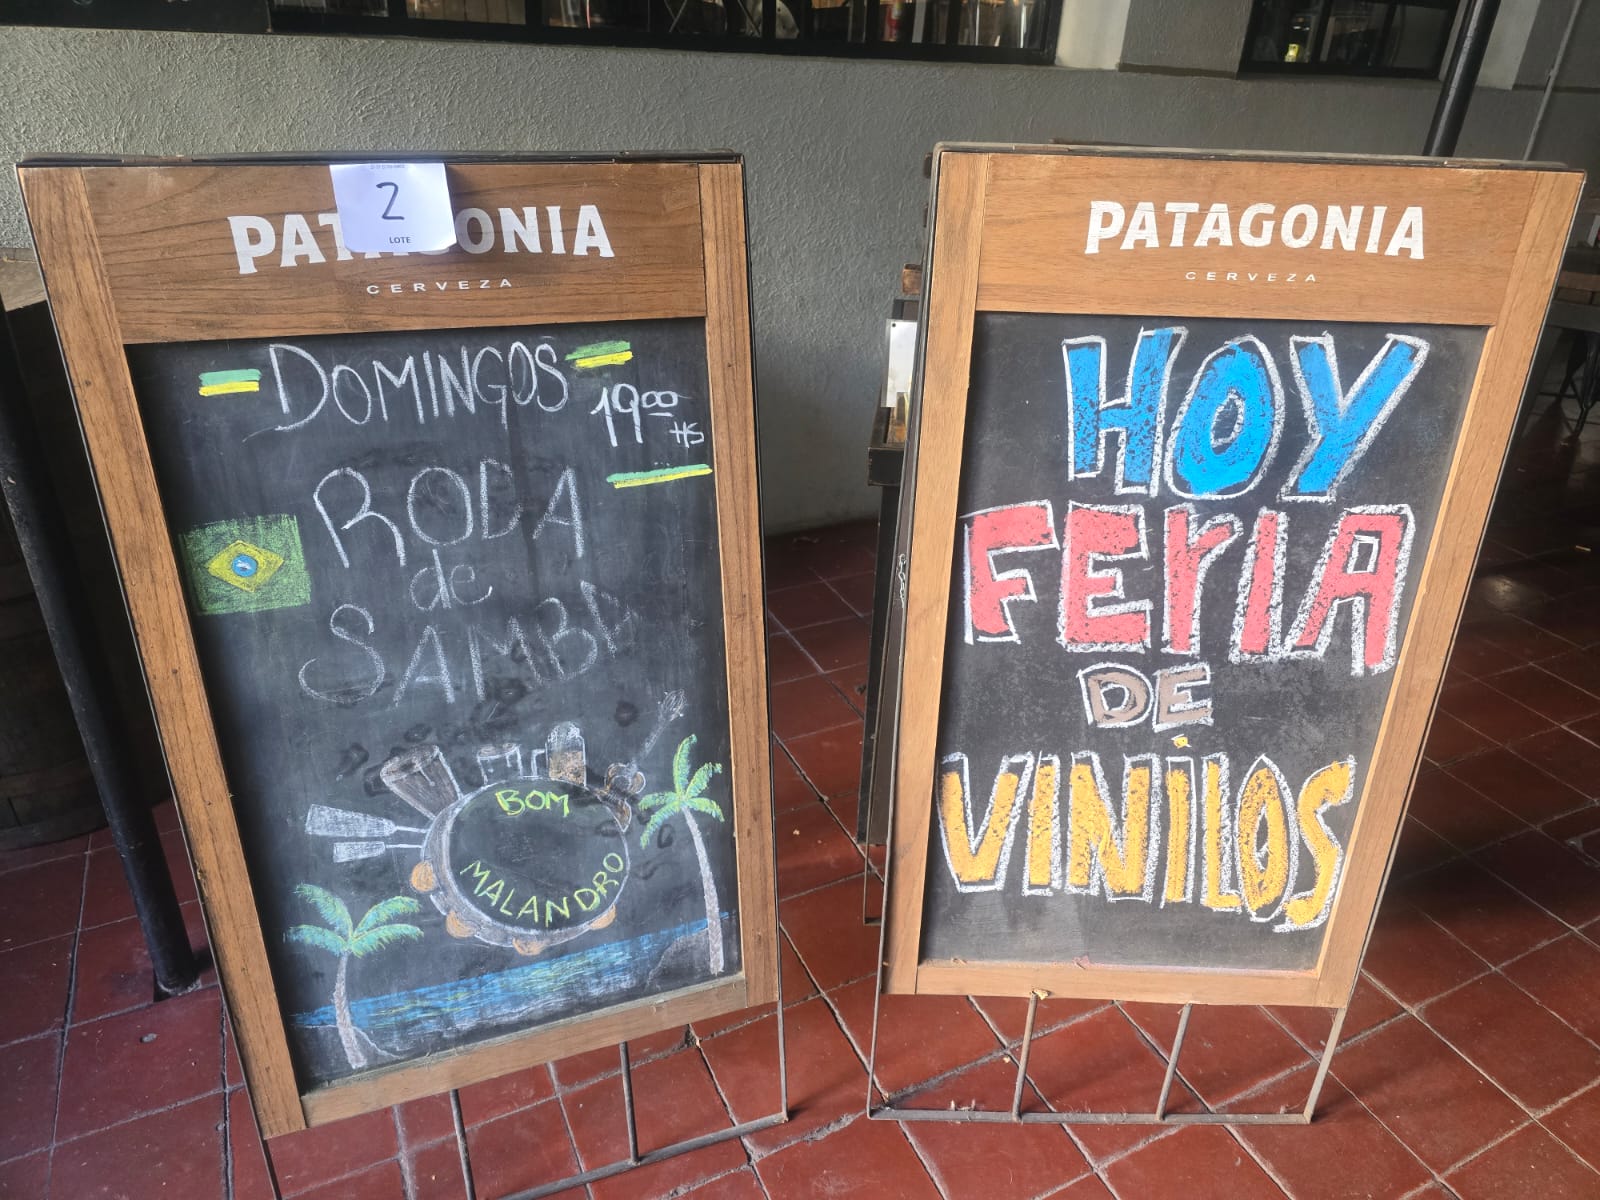 2
LOTE
PATAGONIA
CERVEZA
DOMINGOS
19.00
HS
RODA
de
SAMBA
BOM
MALANDRO
PATAGONIA
CERVEZA
HOY
FERIA
DE
VINILOS